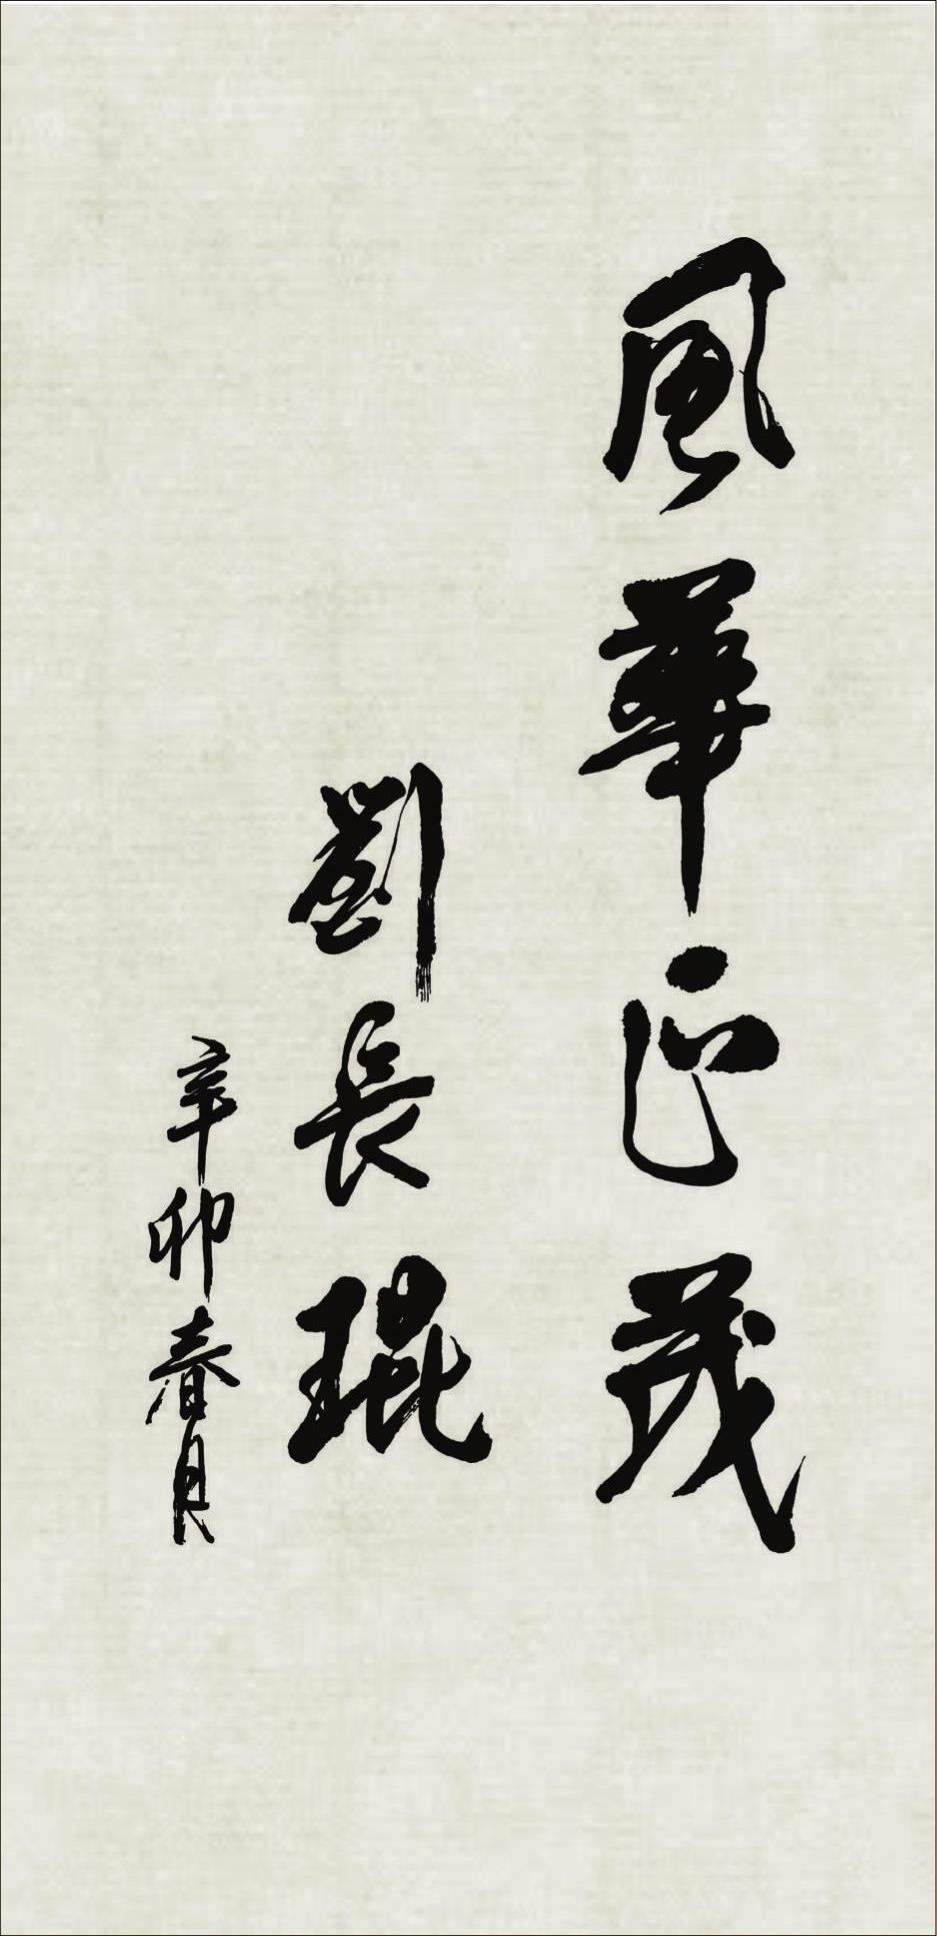 風華正茂
劉長琨
辛卯春月